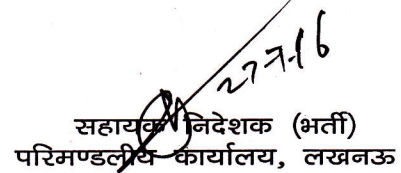 27-7-16
सहायक निदेशक (भर्ती)
परिमण्डलीय कार्यालय, लखनऊ